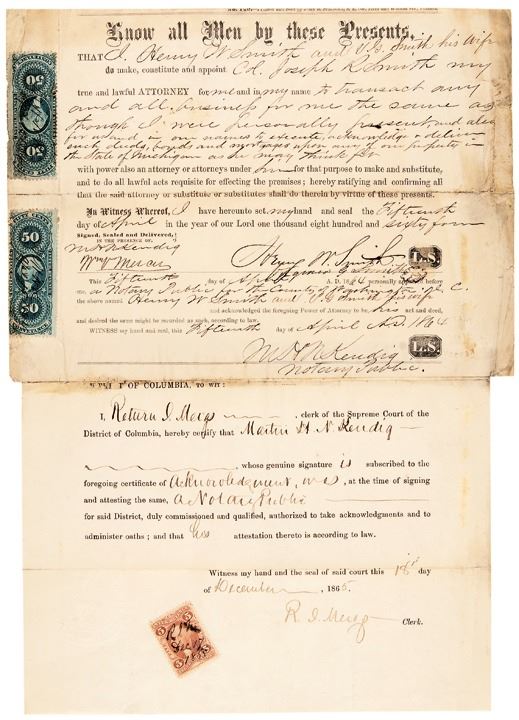 Know all Men by these Presents,
THAT I, Henry W Smith and V. G. Smith his Wife
do make, constitute and appoint Col. Joseph R. Smith my
true and lawful ATTORNEY for me and in my name to transact any
and all business for me the same as
though I were personally present and also
for and in our names to execute, acknowledge & deliver
such deeds, bonds and mortgages upon any of our property in
the State of Michigan as he may think fit
with power also an attorney or attorneys under him for that purpose to make and substitute,
and to do all lawful acts requisite for effecting the premises; hereby ratifying and confirming all
that the said attorney or substitute or substitutes shall do therein by virtue of these presents.
In Witness Whereof, I have hereunto set my hand and seal the Fifteenth
day of April in the year of our Lord one thousand eight hundred and sixty four
Signed, Sealed and Delivered,
IN THE PRESENCE OF
M H N Kendig
Henry W. Smith L.S.
Smith
This Fifteenth day of April A.D. 1864 personally appeared before
me a Notary Public for the County of Washington D. C.
the above named Henry W Smith and V G Smith his wife
and acknowledged the foregoing Power of Attorney to be his act and deed,
and desired the same might be recorded as such, according to law.
WITNESS my hand and seal, this Fifteenth day of April A.D. 1864
M H N Kendig L.S.
Notary Public.
OF COLUMBIA, TO WIT:
I, Return I Meigs, clerk of the Supreme Court of the
District of Columbia, hereby certify that Martin H N Kendig
, whose genuine signature is subscribed to the
foregoing certificate of Acknowledgment, was, at the time of signing
and attesting the same, a Notary Public
for said District, duly commissioned and qualified, authorized to take acknowledgments and to
administer oaths; and that his attestation thereto is according to law.
Witness my hand and the seal of said court this 18th day
of December, 1865.
R. I. Meigs Clerk.
50
50
50
50
5
5